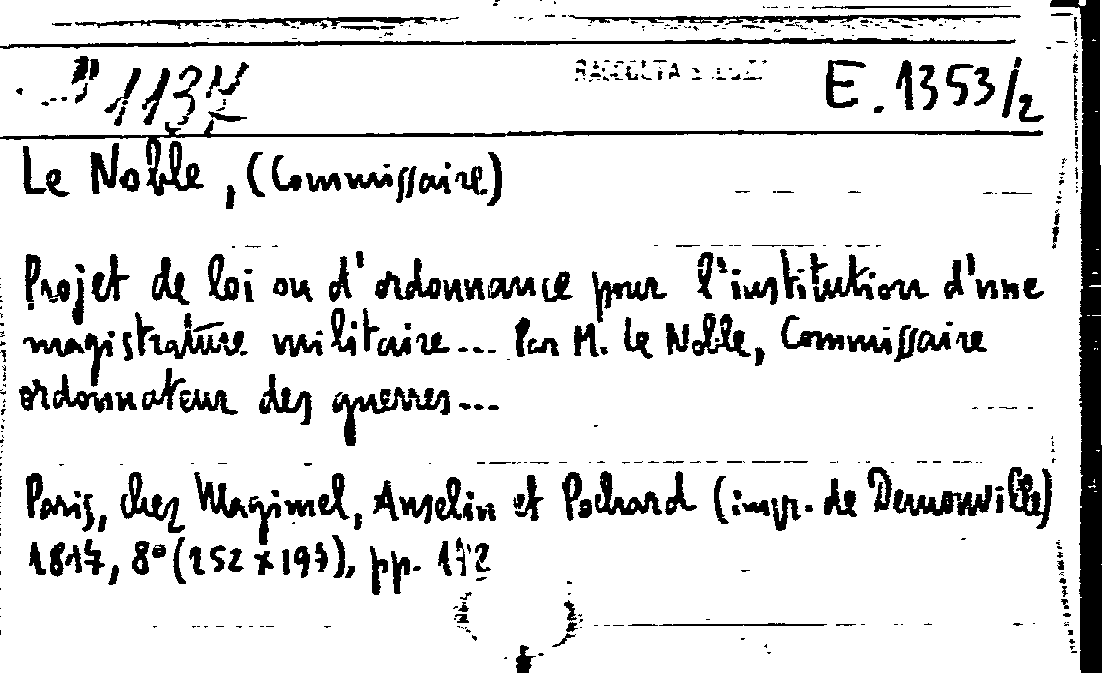 1137 E. 1353/2
Le Noble, (Commissaire)
Projet de loi ou d'ordonnance pour l'institution d'une
magistrature militaire... Par M. Le Noble, Commissaire
ordonnateur des guerres...
Paris, chez Magimel, Anselin et Pochard (impr. de Demonville)
1817, 8° (252 x 197), pp. 172